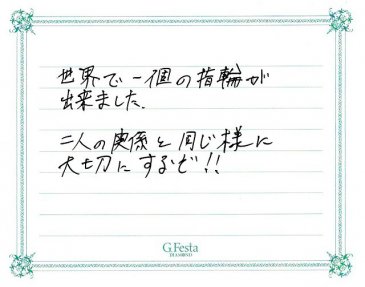 世界で一個の指輪が
出来ました.
二人の関係と同じ様に
大切にするぞ!!
G.Festa
DIAMOND